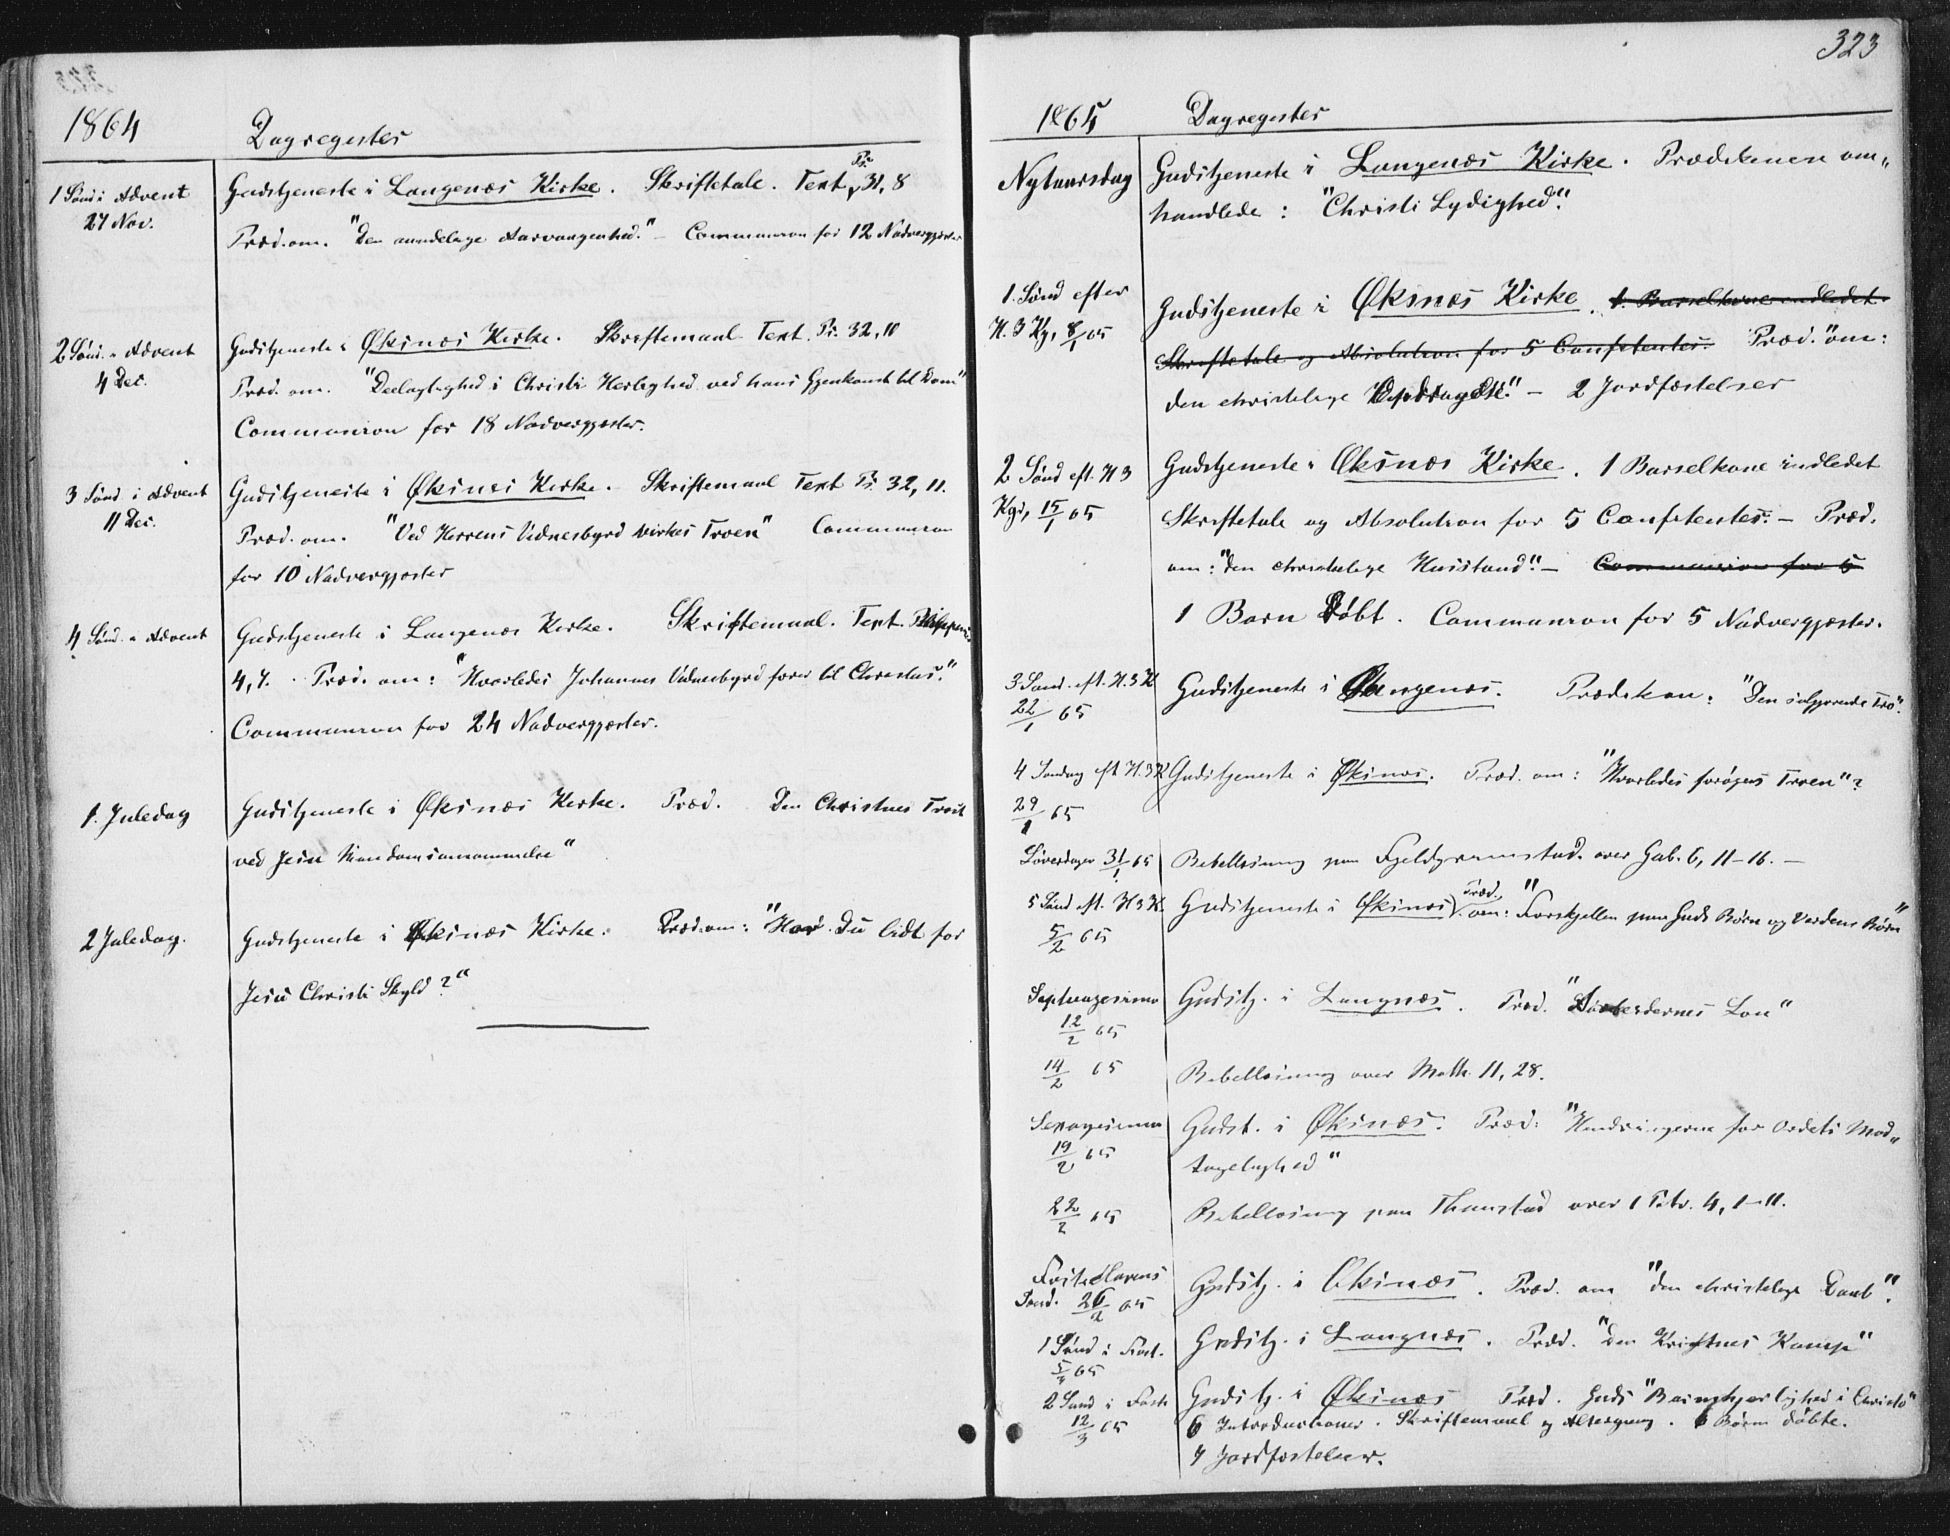 1864 Dagregister
1 Sønd i Advent Gudstjeneste i Langenæs Kirke. Skriftetale. Text Ps. 31, 8
27 Nov. Præd. om. "Den aandelige Aarvaagenhed." – Communion for 12 Nadvergjæster
2 Sønd. i Advent Gudstjeneste i Øksnæs Kirke. Skriftemaal Text. Ps. 32, 11
4 Dec. Præd. om. "Deelagtighed i Christi Herlighed ved hans Gjenkomst til Dom"
Communion for 18 Nadvergjæster.
3 Sønd i Advent Gudstjeneste i Øksnæs Kirke. Skriftemaal Text Ps. 32, 11.
11 Dec. Præd. om. "Ved Herrens Vidnesbyrd virkes Troen" Communion
for 10 Nadvergjæster
4 Sønd. i Advent Gudstjeneste i Langenæs Kirke. Skriftemaal. Text.
4, 7. Præd. om: "Hvorledes Johannes Vidnesbyrd fører til Christus."
Communion for 24 Nadvergjæster.
1. Juledag Gudstjeneste i Øksnæs Kirke. Præd. Den Christnes Trøst
ved Jesu Mandomsannammelse"
2 Juledag. Gudstjeneste i Øksnæs Kirke. Præd. om: "Har Du lidt for
Jesu Christi Skyld?"
323
1865 Dagregister
Nytaarsdag Gudstjeneste i Langenæs Kirke. Prædikenen om„
handlede: "Christi Lydighed."
1. Sønd efter Gudstjeneste i Øksnæs Kirke. 1 Barselkone indledet.
H. 3 Kg, 8/1 65 Skriftetale og Absolution for 5 Confitenter. Præd. "om:
den christelige Opdragelse." – 2 Jordfæstelser
2 Sønd eft. H 3 Gudstjeneste i Øksnæs Kirke. 1 Barselkone indledet
Kgs, 15/1 65 Skriftetale og Absolution for 5 Confitenter. – Præd.
om: "den christelige Husstand". – Communion for 5
1 Barn døbt. Communion for 5 Nadvergjæster.
3 Sønd. eft. H. 3 K Gudstjeneste i Langenæs. Prædiken: "Den saliggjørende Tro".
22/1 65
4 Søndag eft H. 3 K Gudstjeneste i Øksnæs. Præd. om: "Hvorledes forøges Troen"?
29/1 65
31/1 65 Bibellæsning paa over Gal. 6, 11–16. –
5 Sønd eft. H 3 K. Gudstjeneste i Øksnæs. Præd. om: "Forskjellen paa Guds Børn og Verdens Børn"
5/2 65
Septuagesima Gudstj. i Langnæs. Præd. "Arbeidernes Løn"
12/2 65
14/2 65 Bibellæsning over Math. 11, 28.
Sexagesima Gudst. i Øksnæs. Præd: "Hindringerne for Ordets Mod„
19/2 65 tagelighed"
22/2 65 Bibellæsning paa over 1 Petr. 4, 1–11.
Fastelavens Gudstj. i Øksnæs. Præd. om "den christelige Daab".
Sønd. 26/2 65
1 Sønd i Fast. Gudstj. i Langnæs. Præd. "Den Kristnes Kamp"
5/3 65
2 Sønd i Faste Gudstj. i Øksnæs Præd. Guds "Barmhjertighed i Christo"
12/3 65 6 Introductioner. Skriftemaal og Altergang. 6 Børn døbte.
7 Jordfæstelser.